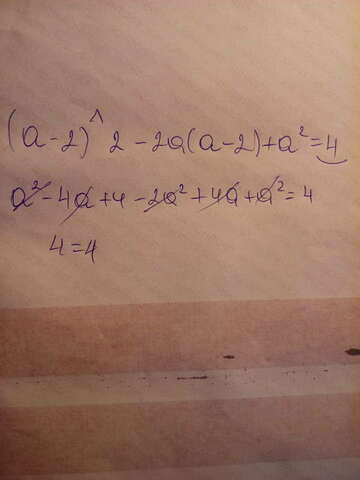 (a-2)^2-2a(a-2)+a²=4
a²-4a+4-2a²+4a+a²=4
4=4